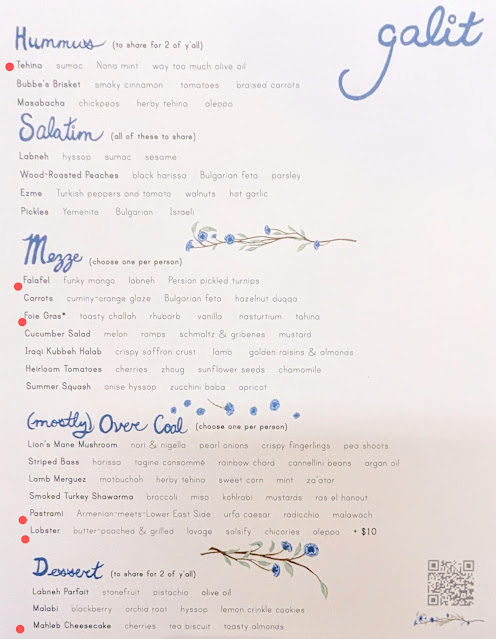 galit
Hummus (to share for 2 of y'all)
Tehina sumac Nana mint way too much olive oil
Bubbe's Brisket smoky cinnamon tomatoes braised carrots
Masabacha chickpeas herby tehina aleppo
Salatim (all of these to share)
Labneh hyssop sumac sesame
Wood-Roasted Peaches black harissa Bulgarian feta parsley
Ezme Turkish peppers and tomato walnuts hot garlic
Pickles Yemenite Bulgarian Israeli
Mezze (choose one per person)
Falafel funky mango labneh Persian pickled turnips
Carrots cuminy-orange glaze Bulgarian feta hazelnut duqqa
Foie Gras* toasty challah rhubarb vanilla nasturtium tahina
Cucumber Salad melon ramps schmaltz & gribenes mustard
Iraqi Kubbeh Halab crispy saffron crust lamb golden raisins & almonds
Heirloom Tomatoes cherries zhoug sunflower seeds chamomile
Summer Squash anise hyssop zucchini baba apricot
(mostly) Over Coal (choose one per person)
Lion's Mane Mushroom nori & nigella pearl onions crispy fingerlings pea shoots
Striped Bass harissa tagine consommé rainbow chard cannellini beans argan oil
Lamb Merguez matbuchah herby tehina sweet corn mint za'atar
Smoked Turkey Shawarma broccoli miso kohlrabi mustards ras el hanout
Pastrami Armenian-meets-Lower East Side urfa caesar radicchio malawach
Lobster butter-poached & grilled lovage salsify chicories aleppo + $10
Dessert (to share for 2 of y'all)
Labneh Parfait stonefruit pistachio olive oil
Malabi blackberry orchid root hyssop lemon crinkle cookies
Mahleb Cheesecake cherries tea biscuit toasty almonds